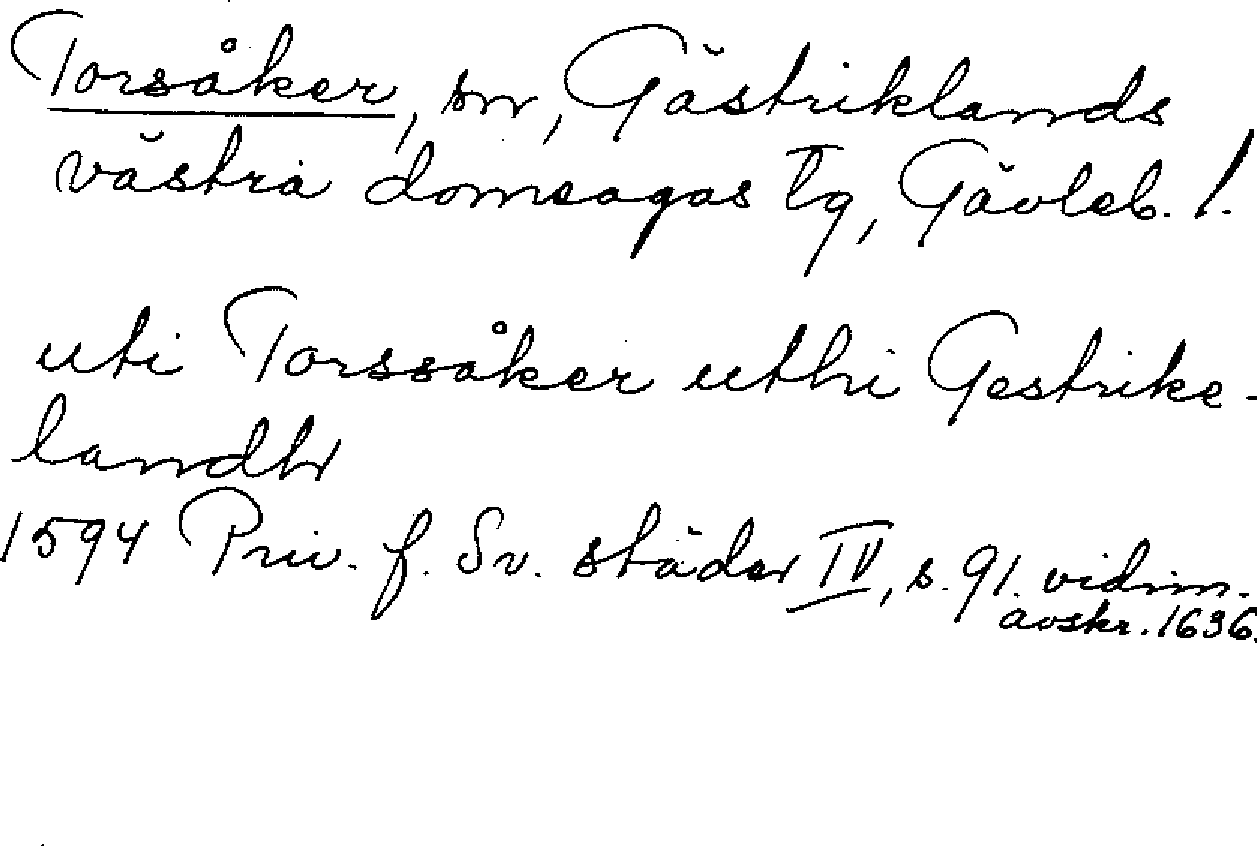 Torsåker, sn, Gästriklands
västra domsagas tg, Gävleb. l.
uti Torssåker uthi Gestrike-
landh
1594 Priv. f. Sv. städer IV, s. 91. vidim.
avskr. 1636.